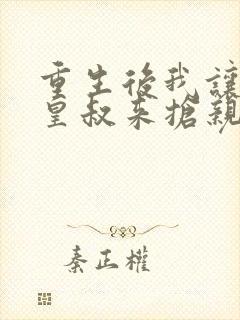 重生後我讓
皇叔來搶親
秦正權